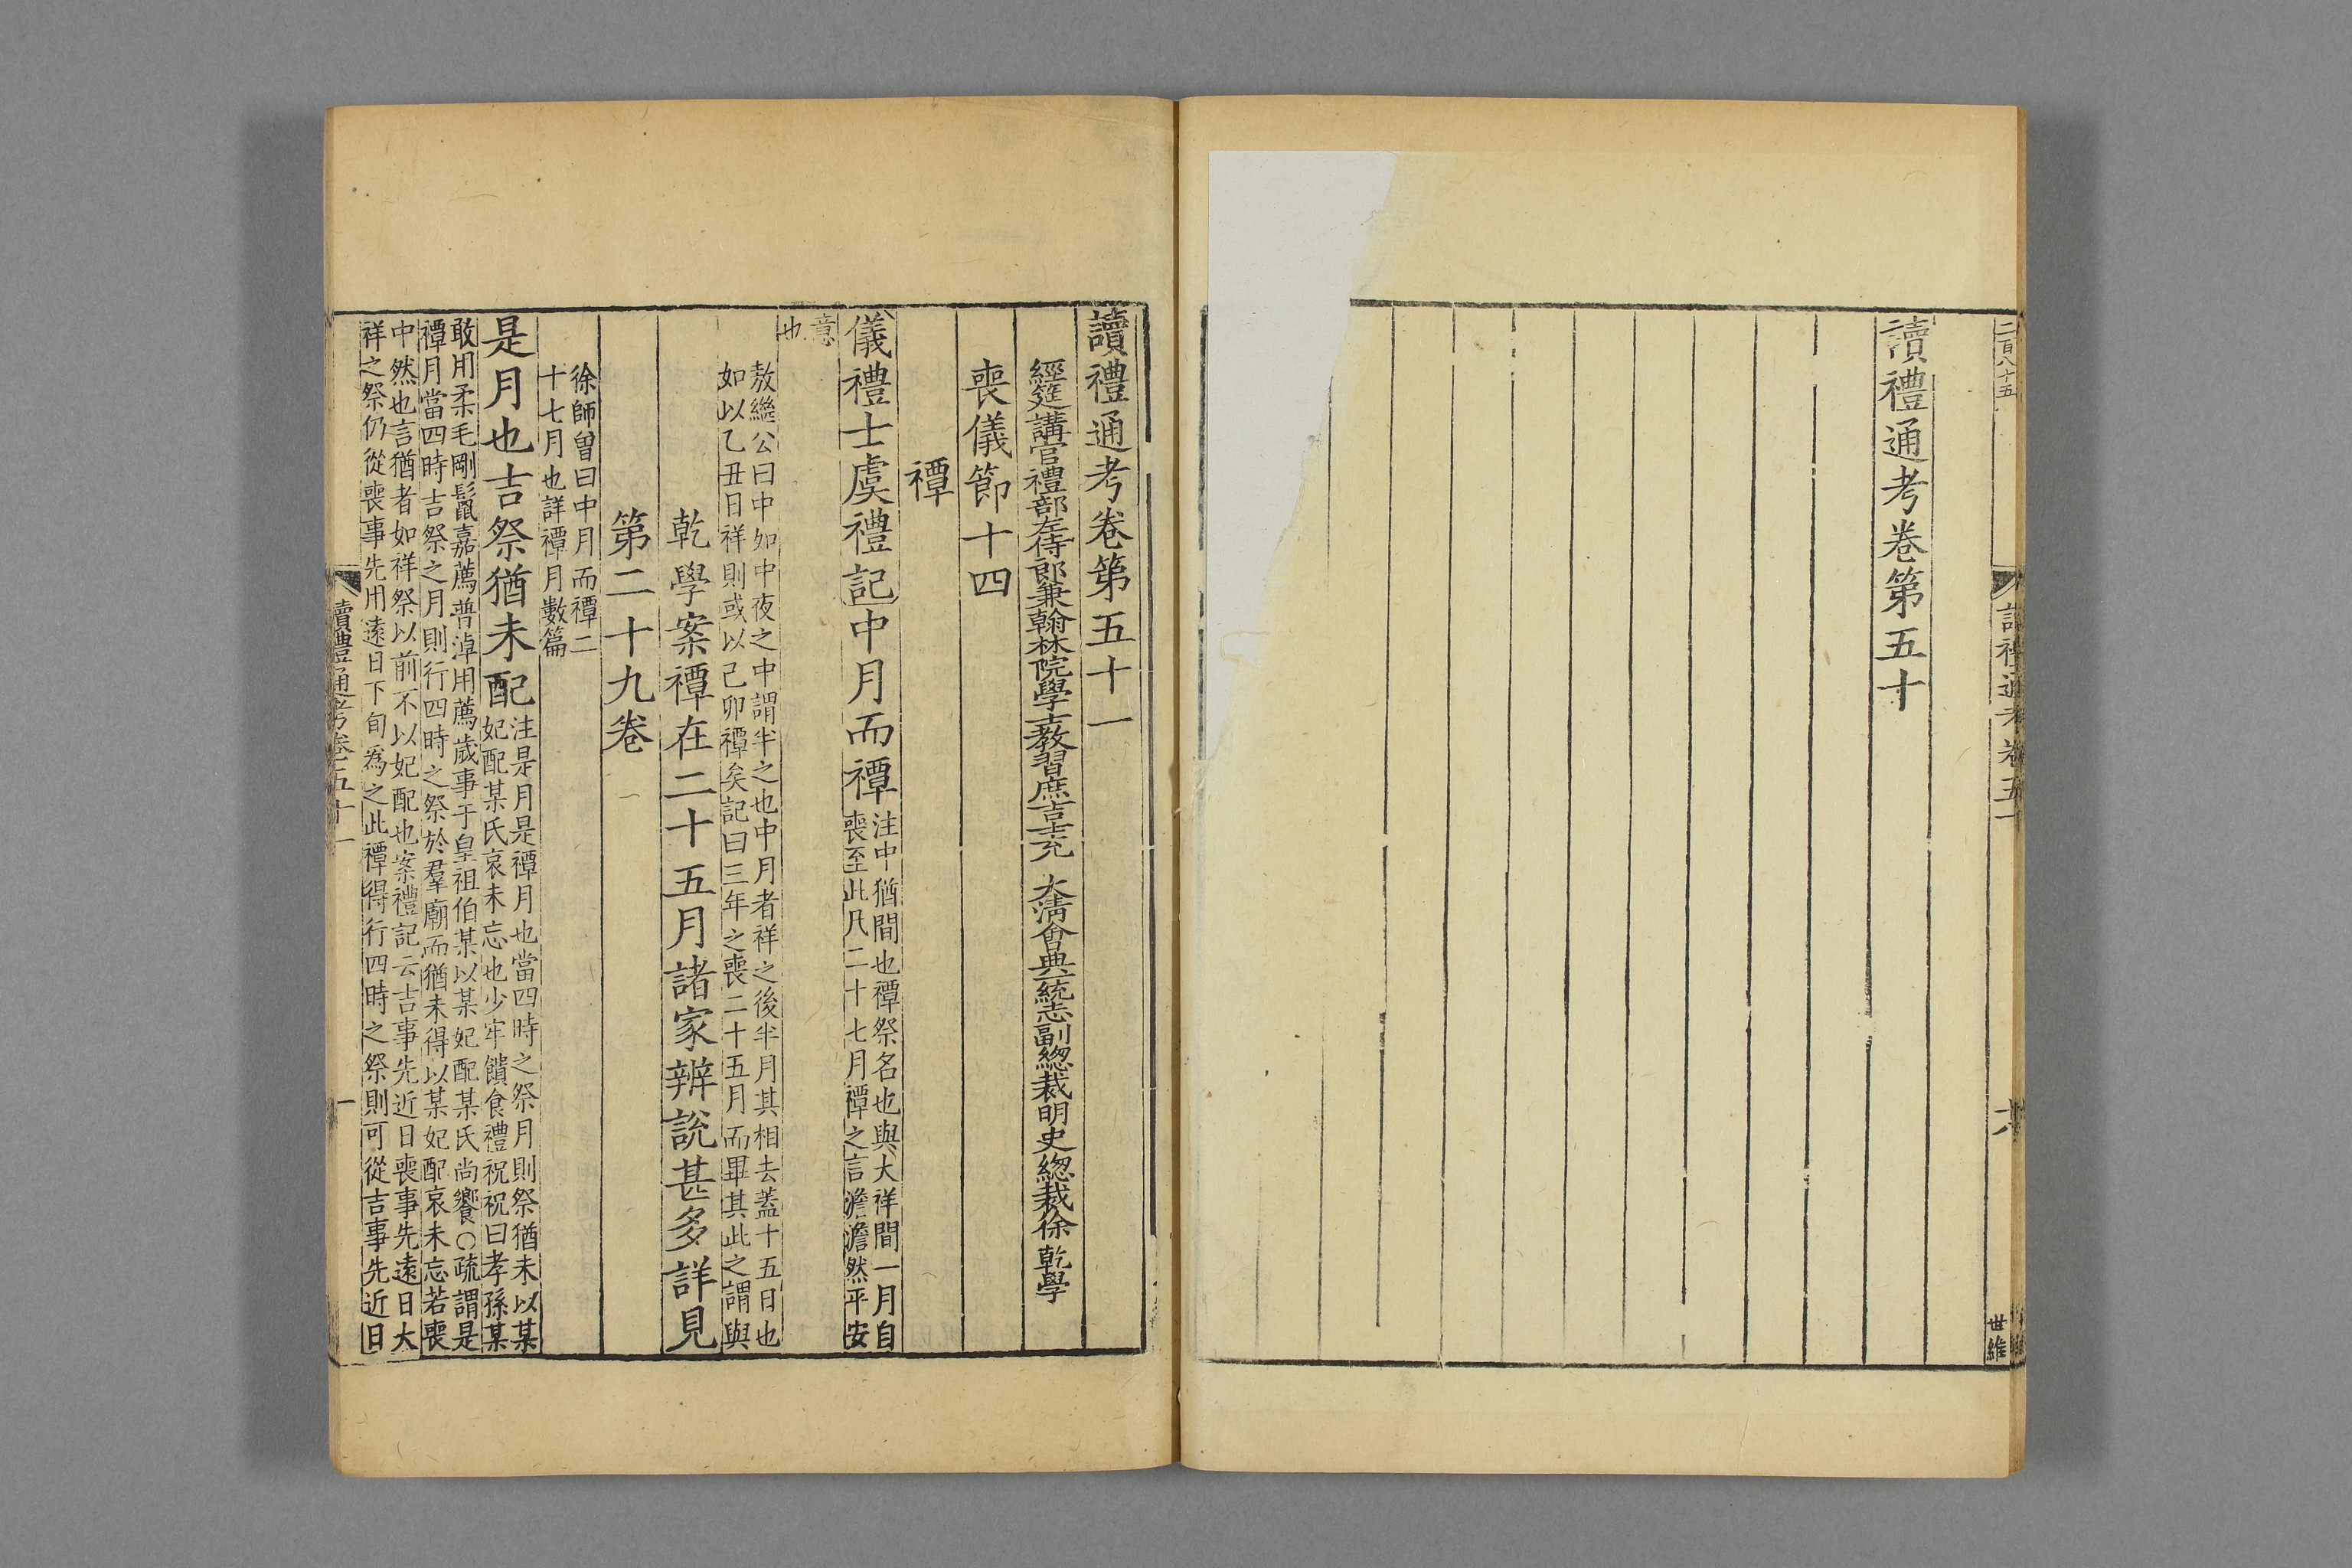 二百八十五
讀禮通考卷五十
六
世維
讀禮通考卷第五十
讀禮通考卷第五十一
經筵講官禮部左侍郎兼翰林院學士教習庶吉士充 大清會典一統志副總裁明史總裁徐 乾學
喪儀節十四
禫
儀禮士虞禮記中月而禫
注中猶間也禫祭名也與大祥間一月自
喪至此凡二十七月禫之言澹澹然平安
意
也
敖繼公曰中如中夜之中謂半之也中月者祥之後半月其相去蓋十五日也
如以乙丑日祥則或以己卯禫矣記曰三年之喪二十五月而畢其此之謂與
乾學案禫在二十五月諸家辨説甚多詳見
第二十九卷
徐師曾曰中月而禫二
十七月也詳禫月數篇
是月也吉祭猶未配
注是月是禫月也當四時之祭月則祭猶未以某
妃配某氏哀未忘也少牢饋食禮祝祝曰孝孫某
敢用柔毛剛鬣嘉薦普淖用薦歲事于皇祖伯某以某妃配某氏尚饗○疏謂是
禫月當四時吉祭之月則行四時之祭於羣廟而猶未得以某妃配哀未忘若喪
中然也言猶者如祥祭以前不以妃配也案禮記云吉事先近日喪事先遠日大
祥之祭仍從喪事先用遠日下旬為之此禫得行四時之祭則可從吉事先近日
讀禮通考卷五十一
一